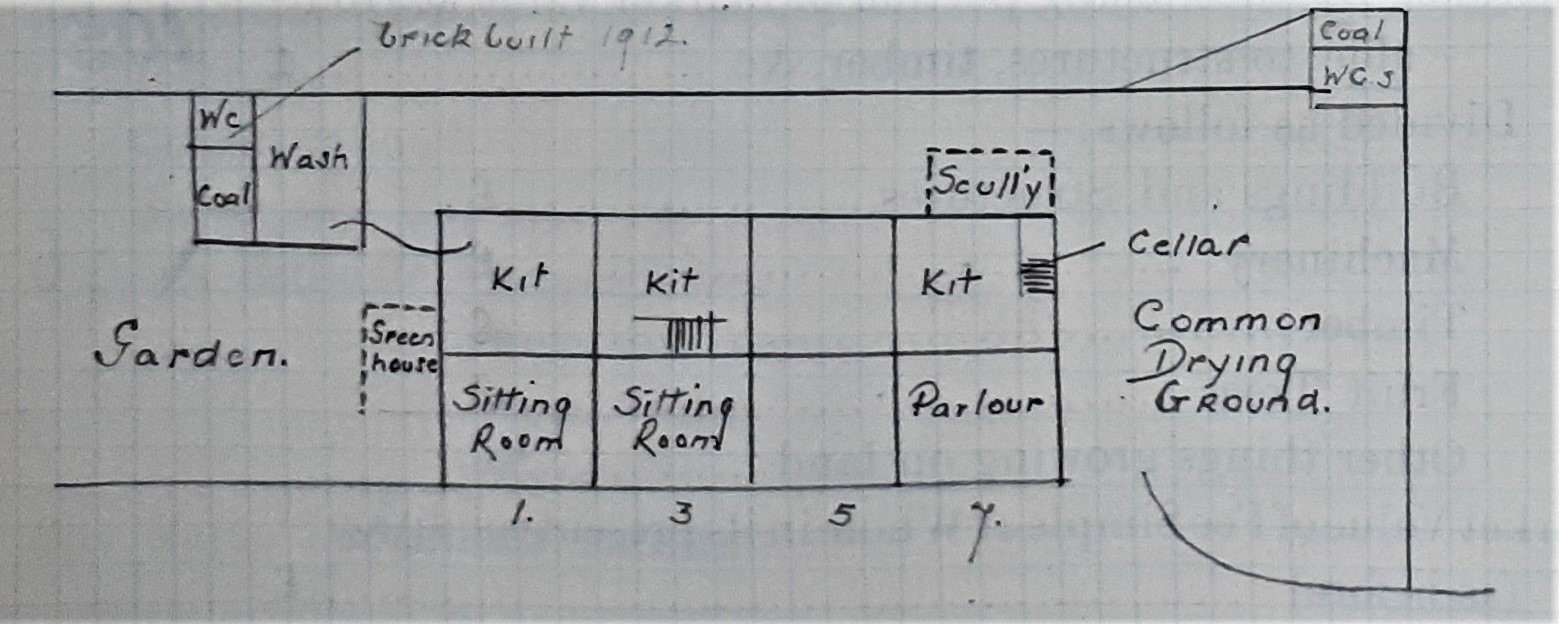 brick built 1912.
Coal
WCs
Wc
Wash
Coal
Scull'y
Cellar
Kit
Kit
Kit
Green
house
Garden.
Common
Drying
Ground.
Sitting
Room
Sitting
Room
Parlour
1.
3
5
7.